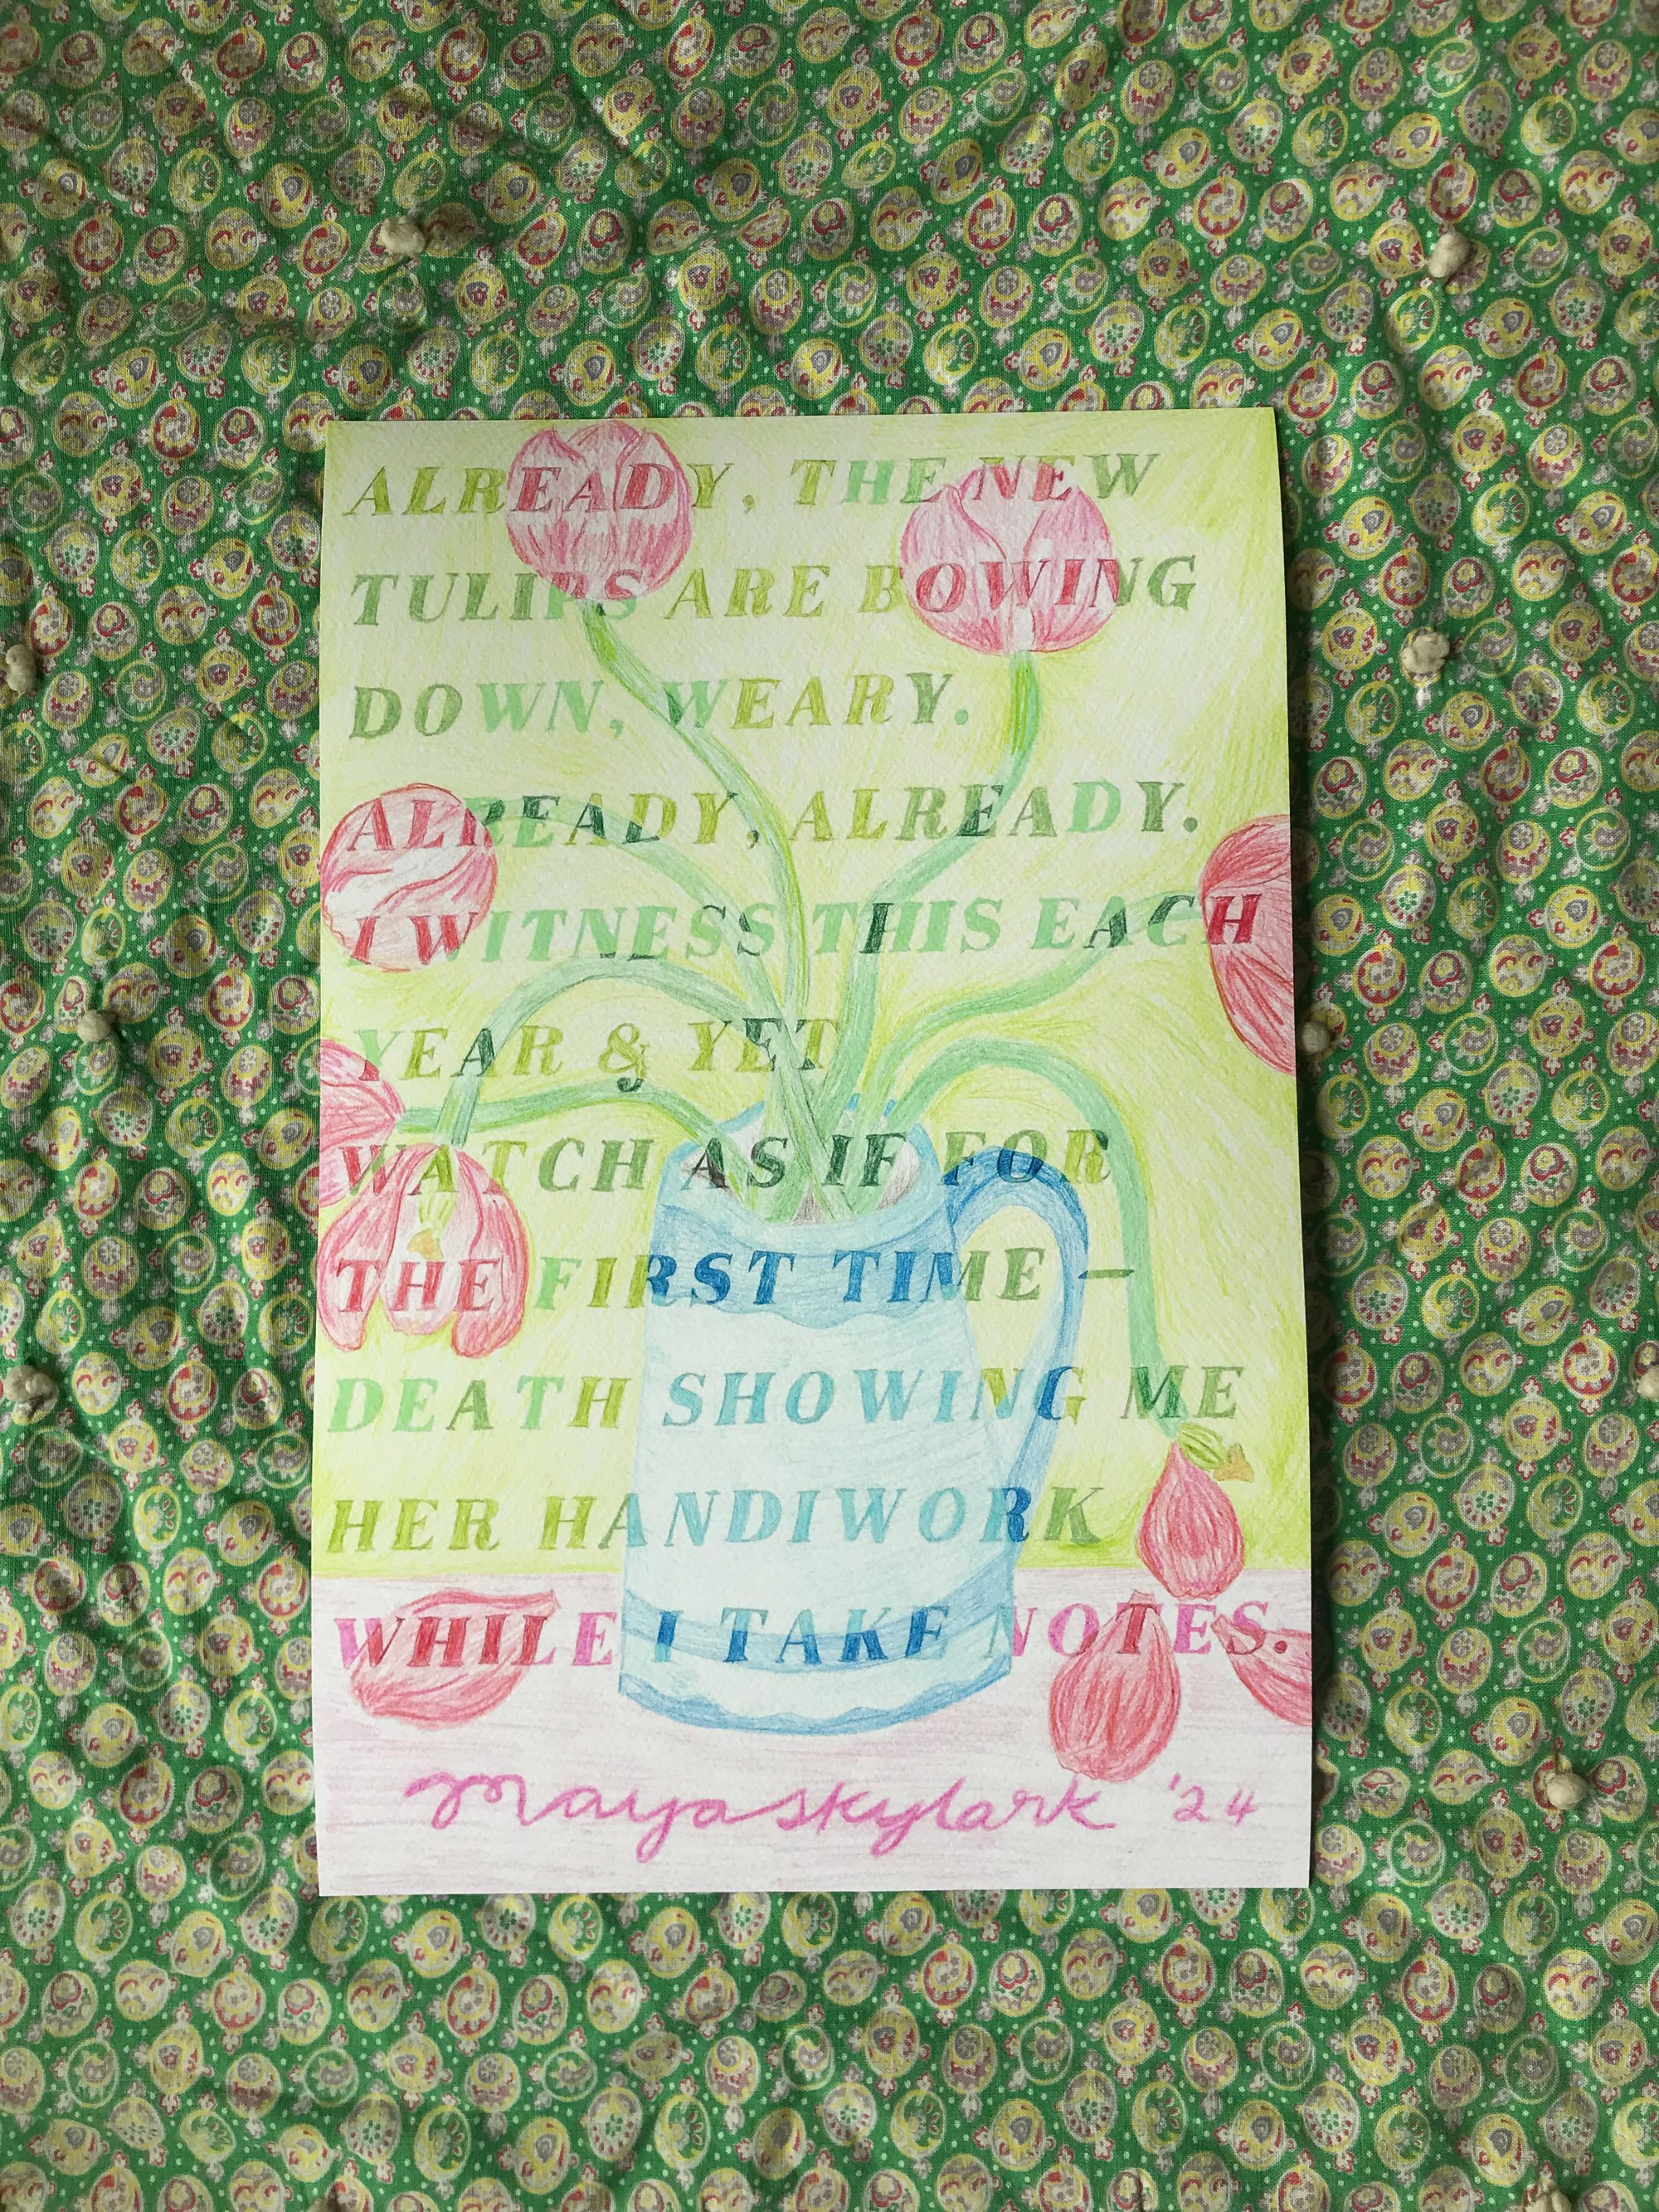 ALREADY, THE NEW
TULIPS ARE BOWING
DOWN, WEARY.
ALREADY, ALREADY.
I WITNESS THIS EACH
YEAR & YET
WATCH AS IF FOR
THE FIRST TIME —
DEATH SHOWING ME
HER HANDIWORK
WHILE I TAKE NOTES.
Mayaskylark '24